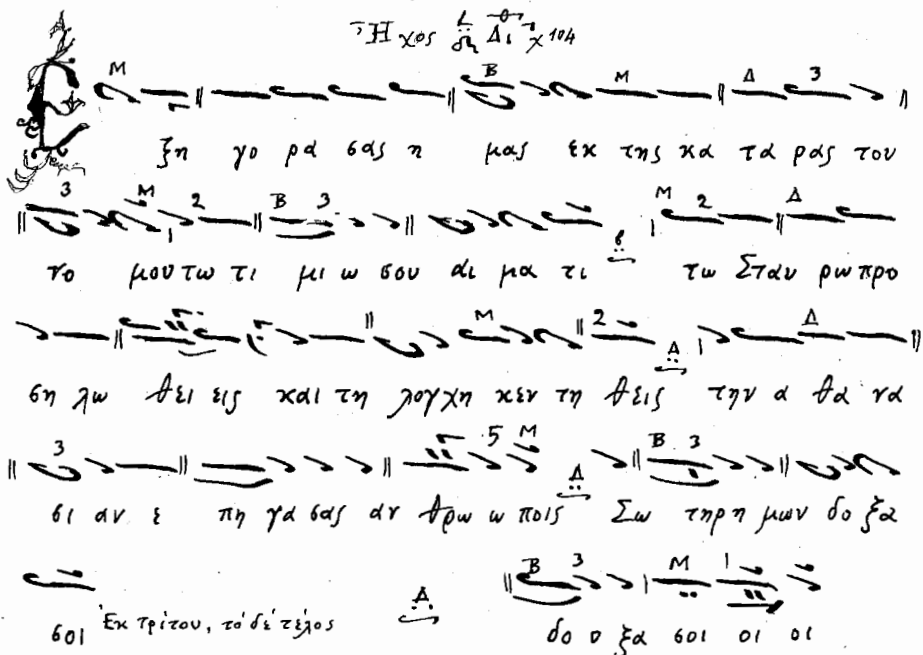 Ἦχος Δι χ 104
Ἐ ξη γο ρα σας η μας εκ της κα τα ρας του
νο μου τω τι μι ω σου αι μα τι τω Σταυ ρω προ
ση λω θει εις και τη λογχη κεν τη θεις την α θα να
σι αν ε πη γα σας αν θρω ω ποις Σω τηρ η μων δο ξα
σοι Ἐκ τρίτου, τό δέ τέλος δο ο ξα σοι οι οι